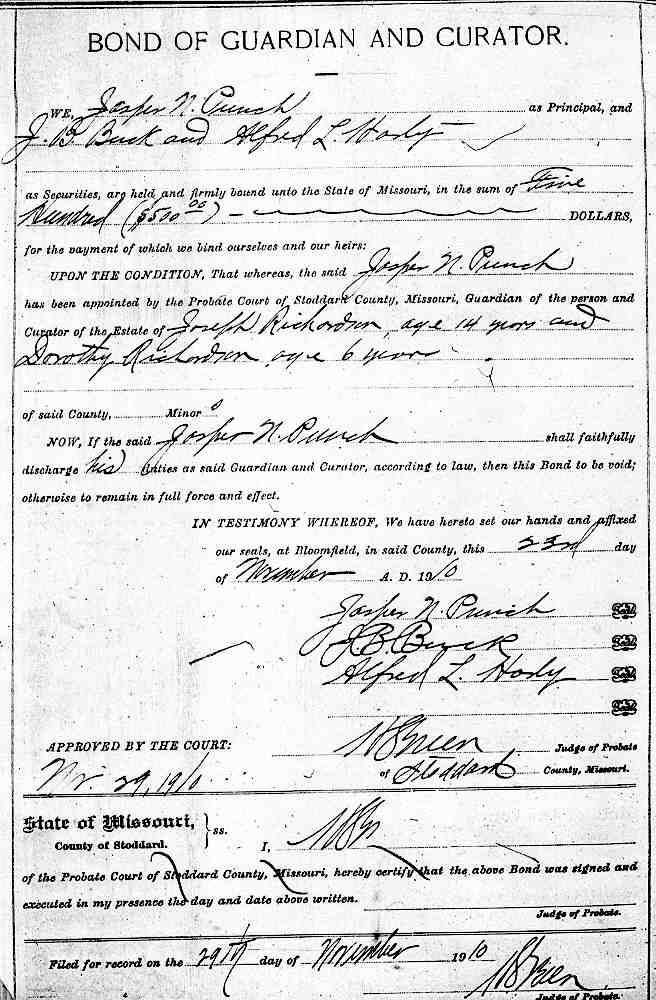 BOND OF GUARDIAN AND CURATOR.
WE, Jasper N. Punch as Principal, and
J. B. Buck and Alfred L. Hody
as Securities, are held and firmly bound unto the State of Missouri, in the sum of Five
Hundred ($500 00) DOLLARS,
for the payment of which we bind ourselves and our heirs:
UPON THE CONDITION, That whereas, the said Jasper N. Punch
has been appointed by the Probate Court of Stoddard County, Missouri, Guardian of the person and
Curator of the Estate of Joseph Richardson, age 14 years and
Dorothy Richardson age 6 years
of said County, Minors
NOW, If the said Jasper N. Punch shall faithfully
discharge his duties as said Guardian and Curator, according to law, then this Bond to be void;
otherwise to remain in full force and effect.
IN TESTIMONY WHEREOF, We have hereto set our hands and affixed
our seals, at Bloomfield, in said County, this 23rd day
of November A. D. 1910
Jasper N. Punch Seal
J. B. Buck Seal
Alfred L. Hody Seal
Seal
APPROVED BY THE COURT: Green Judge of Probate
Nov. 29, 1910 of Stoddard County, Missouri.
State of Missouri, } ss.
County of Stoddard. I,
of the Probate Court of Stoddard County, Missouri, hereby certify that the above Bond was signed and
executed in my presence the day and date above written.
Judge of Probate.
Filed for record on the 29th day of November 1910
Green
Judge of Probate.